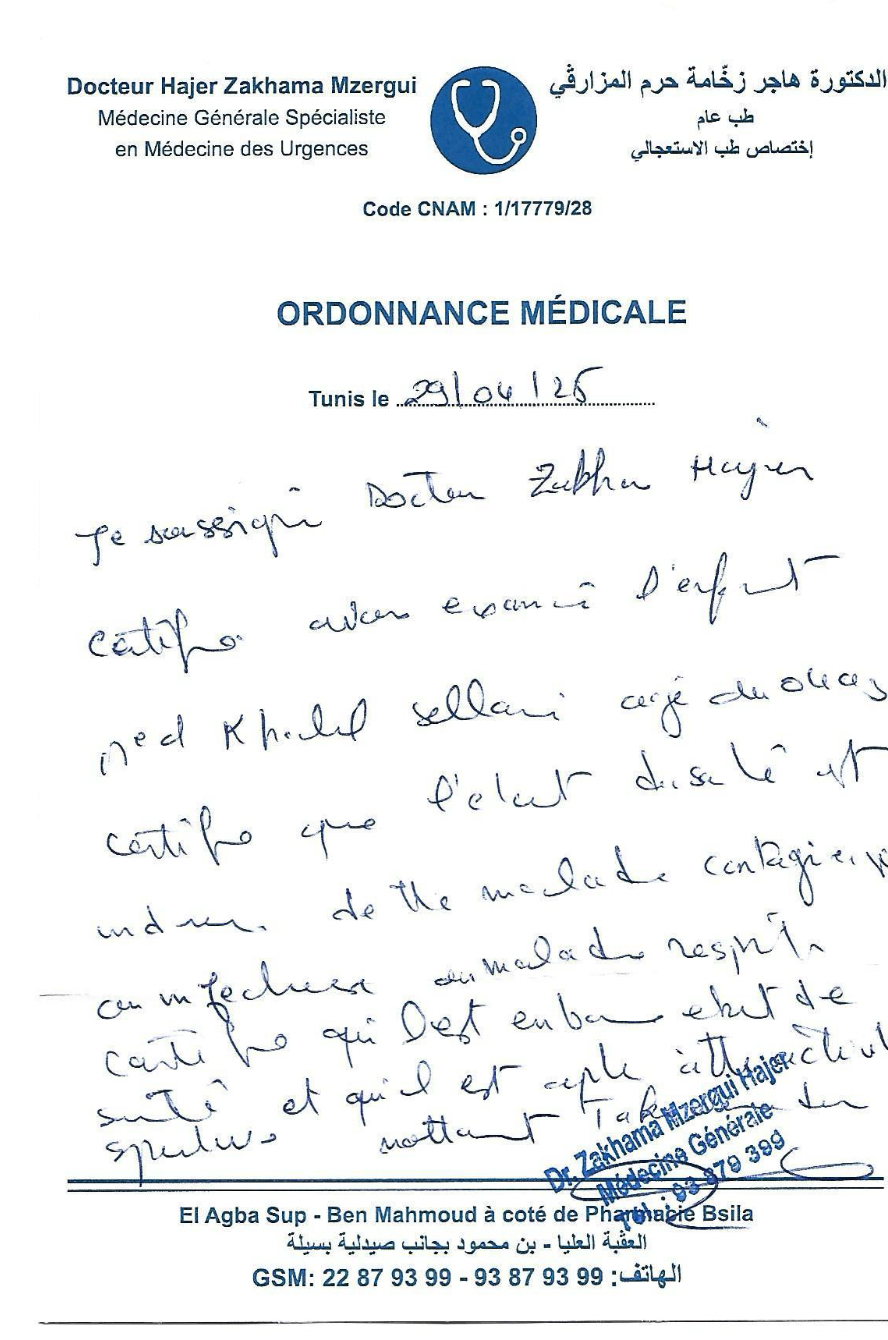 Docteur Hajer Zakhama Mzergui
Médecine Générale Spécialiste
en Médecine des Urgences
الدكتورة هاجر زخّامة حرم المزارڤي
طب عام
إختصاص طب الاستعجالي
Code CNAM : 1/17779/28
ORDONNANCE MÉDICALE
Tunis le 29/04/25
Je soussigné Docteur Hajer
certifie avoir examiné l'enfant
Med Khalil Sellami agé de
certifie que l'état de santé est
de tte maladie contagieuse
ou infectieuse ou maladie respirt
certifie qu'il est en bon etat de
santé et qu'il est apte à
notamment
Dr. Zakhama Mzergui Hajer
Médecine Générale
Tel : 93 879 399
El Agba Sup - Ben Mahmoud à coté de Pharmacie Bsila
العقبة العليا - بن محمود بجانب صيدلية بسيلة
GSM: 22 87 93 99 - 93 87 93 99 :الهاتف